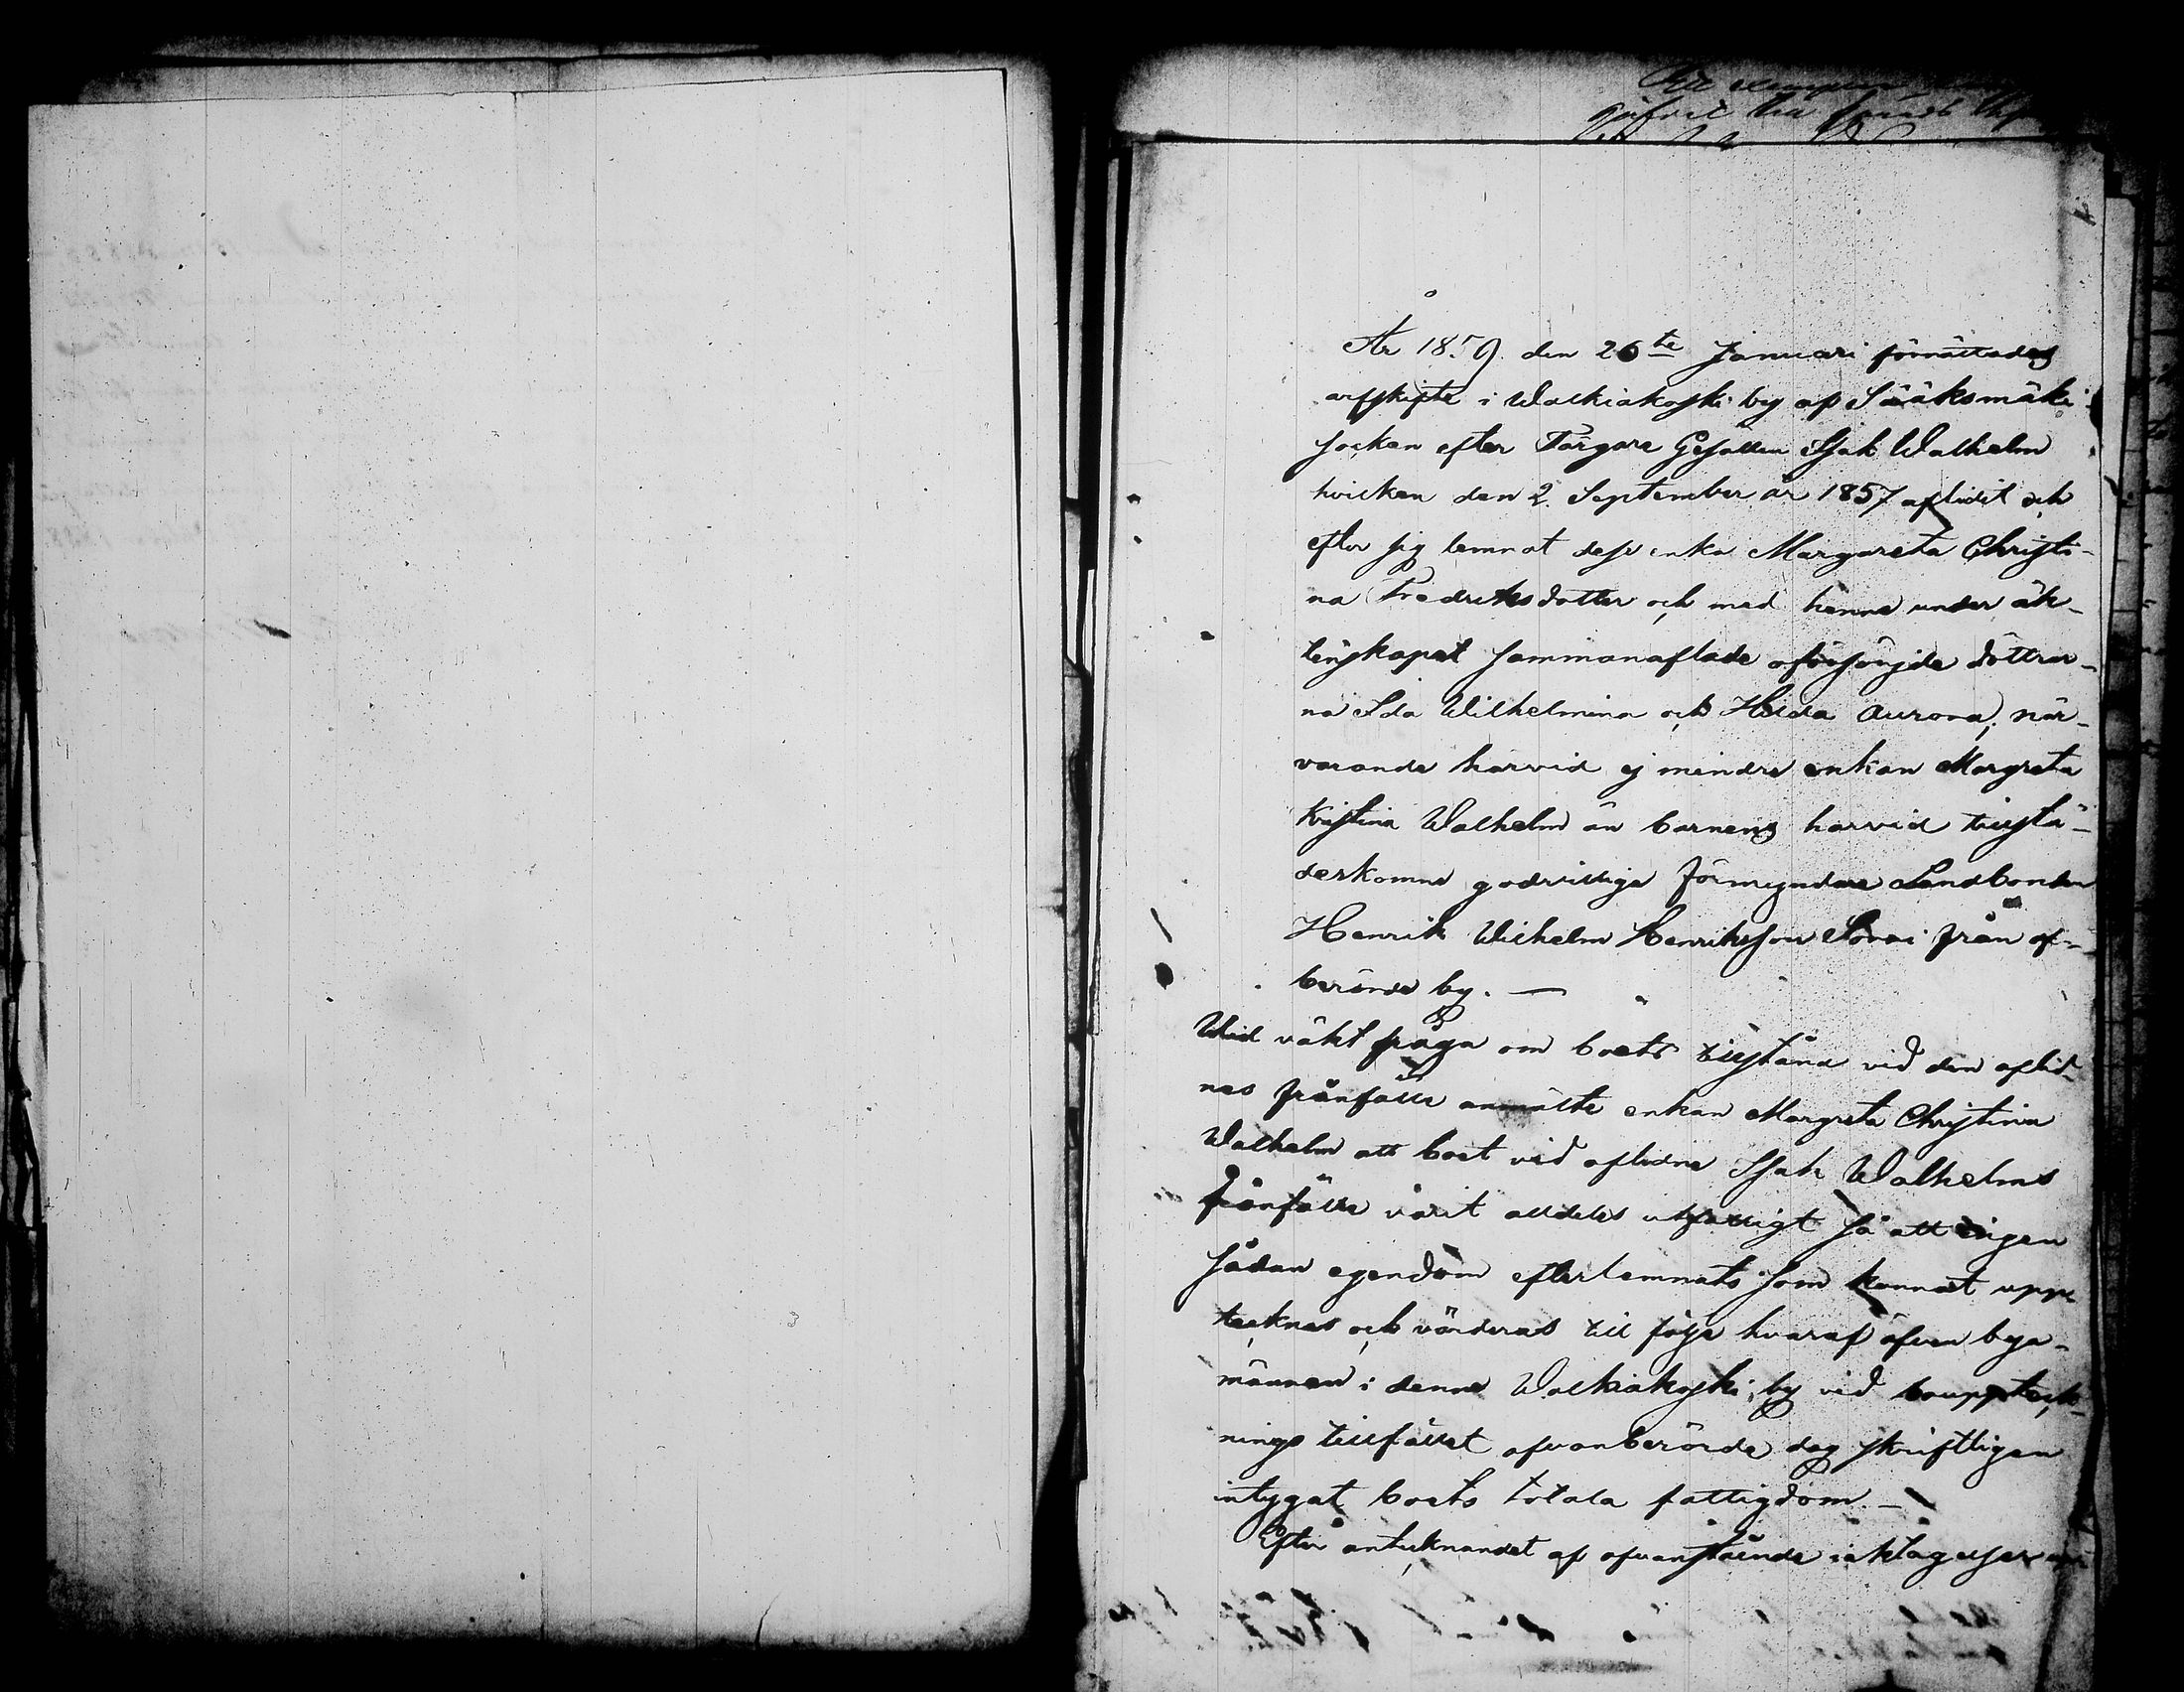 År 1859. den 26te Januari förrättades
arfskifte i Walkiakoski by af Sääksmäki
socken efter Färgare Gesällen Isak Walhelm
hvilken den 2. September år 1857 aflidit och
efter sig lemnat dess enka Margareta Christi-
na Fredriksdotter och med henne under äk-
tenskapet sammanaflade oförsörjde döttrar-
na Ida Wilhelmina och Hilda Aurora; när-
varande härvid ej mindre enkan Margreta
Kristina Walhelm än barnens härvid tillstä-
deskomne godvillige förmyndare Landbonden
Henrik Wilhelm Henriksson från of-
berörde by. —
Wid väkt fråga om boets tillstånd vid den aflid-
nes frånfälle anmälte enkan Margreta Christina
Walhelm att boet vid aflidne Isak Walhelms
frånfälle varit alldeles utfattigt så att ingen
sådan egendom efterlemnats som kunnat upp-
tecknas och värderas till följe hvaraf äfven bya-
männen i denne Walkiakoski by vid bouppteck-
nings tillfället ofvanberörde dag skriftligen
intygat boets totala fattigdom. —
Efter antecknandet af ofvanstående iakttagelser